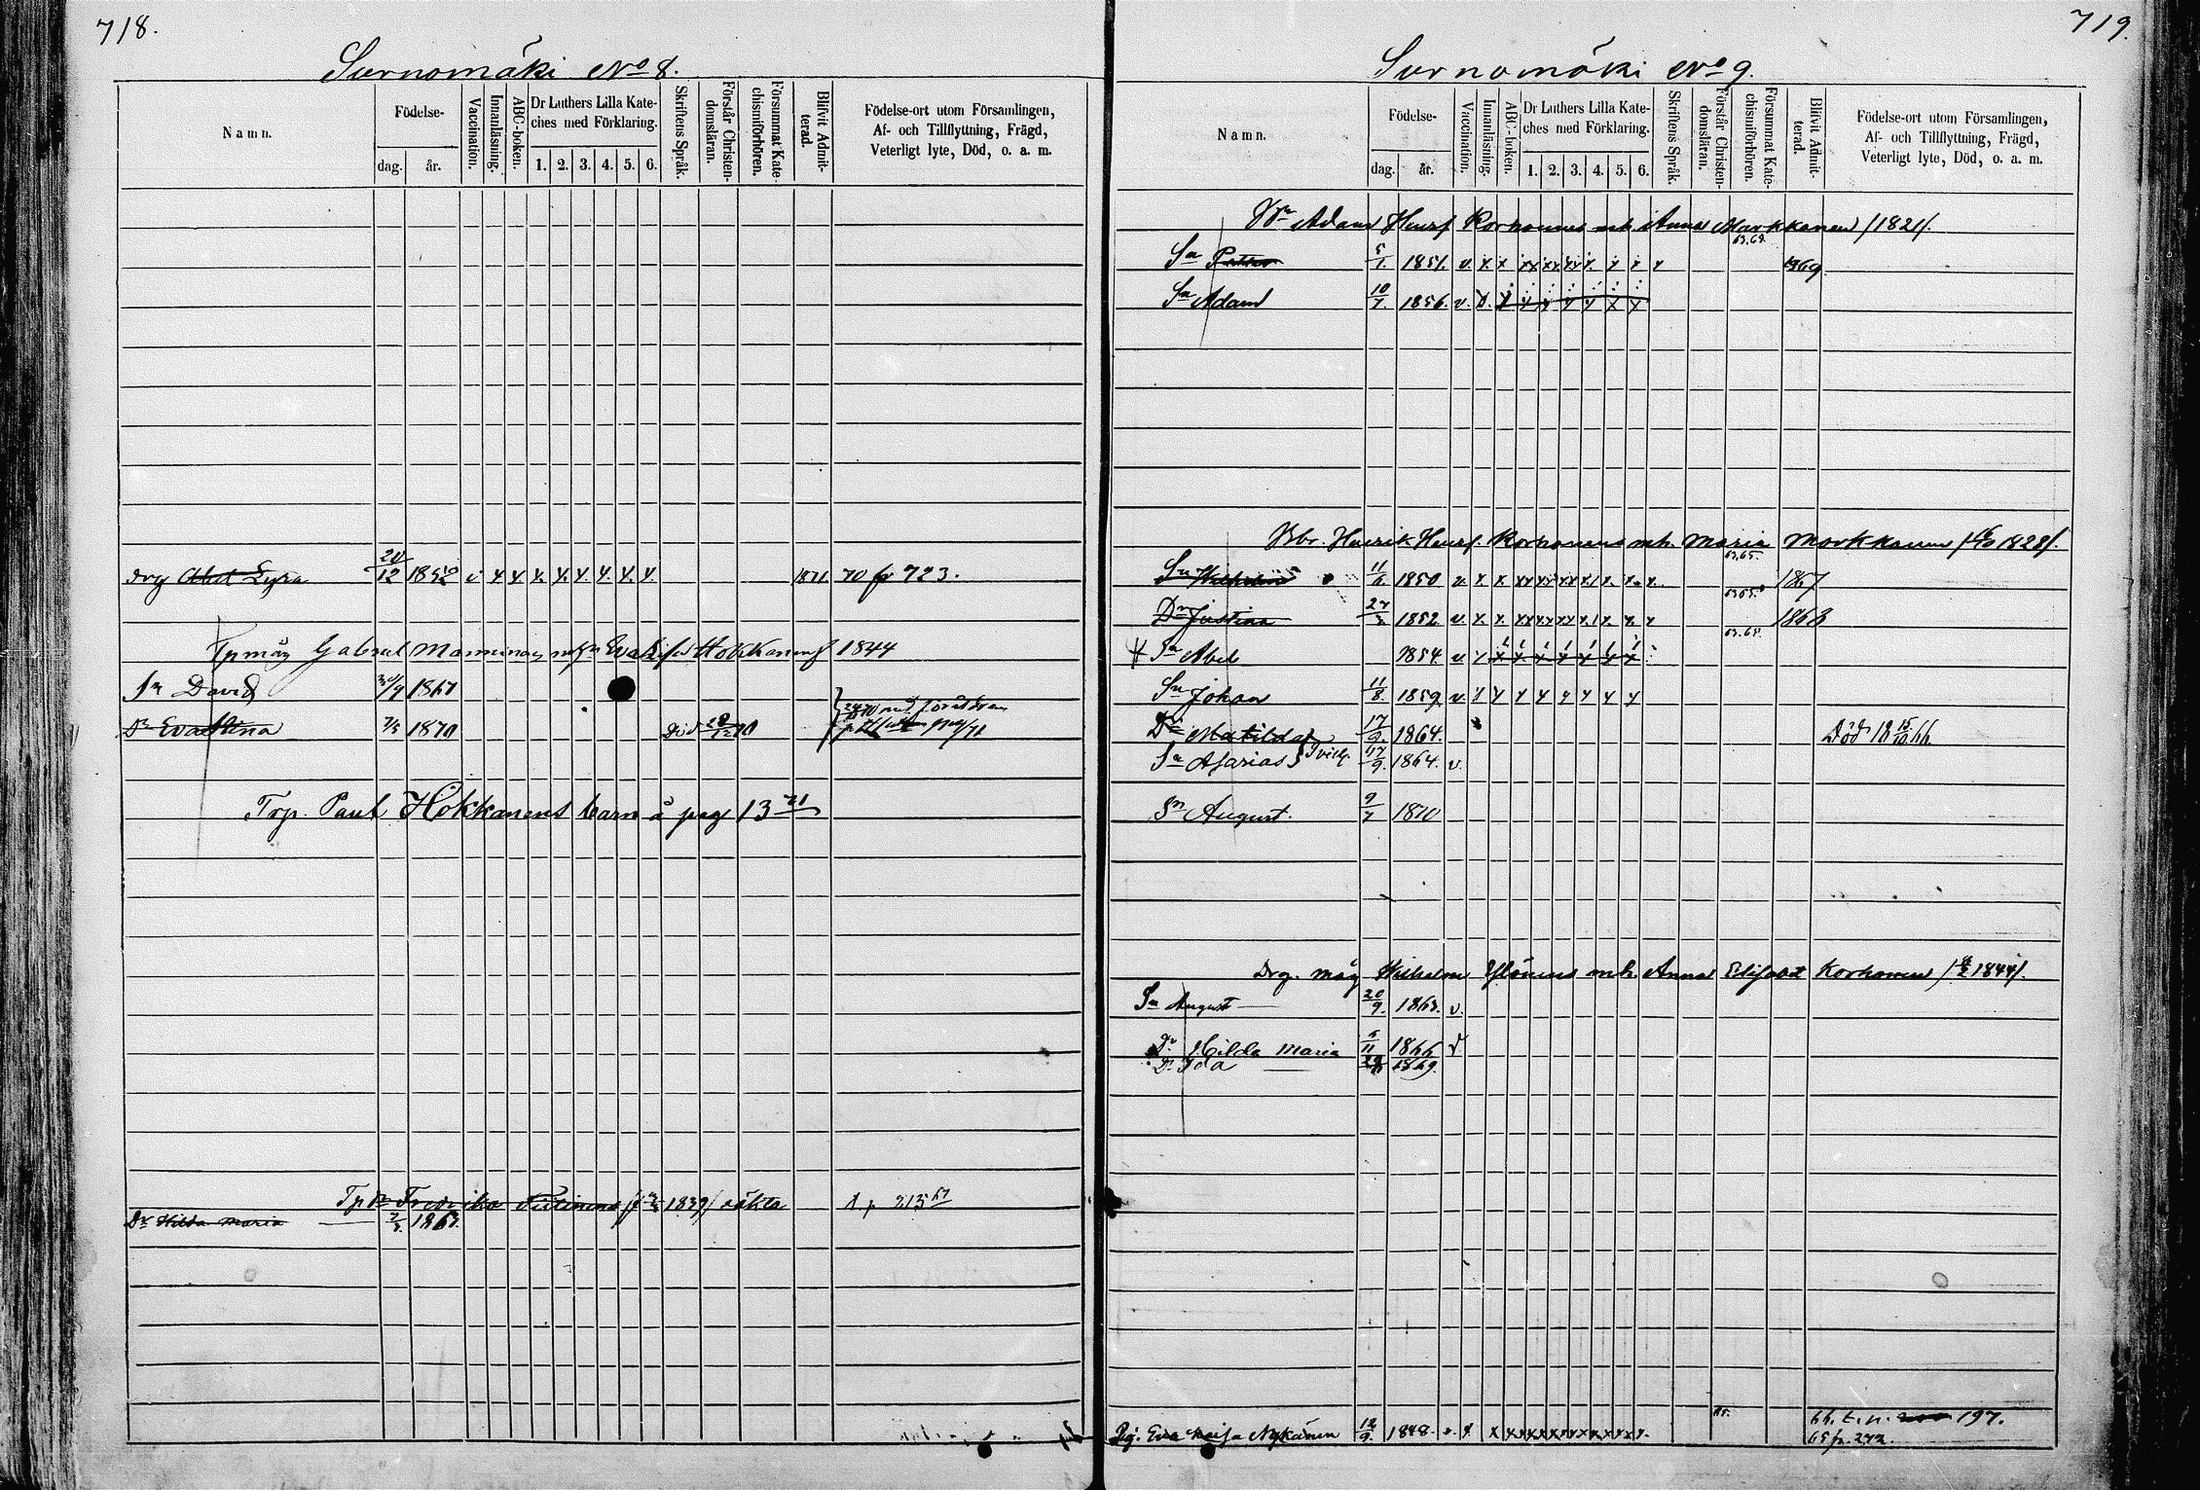 718.
Surnomäki No 8.
Namn.
Födelse-
dag.
år.
Vaccination.
Innanläsning.
ABC-boken.
Dr Luthers Lilla Kate-
ches med Förklaring.
1. 2. 3. 4. 5. 6.
Skriftens Språk.
Förstår Christen-
domsläran.
Försummat Kate-
chismiförhören.
Blifvit Admit-
terad.
Födelse-ort utom Församlingen,
Af- och Tillflyttning, Frägd,
Veterligt lyte, Död, o. a. m.
drg Abel Lyra 20/12 1850 v 1871. 70 fr 723.
Gabriel Manninen Hokkanen 1844
Sn David 1867
Dr Eva Stina 1870 Död
Trp. Paul Hokkanens barn å pag 13 71
Fredrika 1839 säkta 213 67
Dr Hilda Maria 1867.
719.
Surnomäki No 9.
Namn.
Födelse-
dag.
år.
Vaccination.
Innanläsning.
ABC-boken.
Dr Luthers Lilla Kate-
ches med Förklaring.
1. 2. 3. 4. 5. 6.
Skriftens Språk.
Förstår Christen-
domsläran.
Försummat Kate-
chismiförhören.
Blifvit Admit-
terad.
Födelse-ort utom Församlingen,
Af- och Tillflyttning, Frägd,
Veterligt lyte, Död, o. a. m.
Adam Henrs. Korhonens mh. Anna Markkanen /1821/.
Sn Petter 5/1. 1851. v. 1869
Sn Adam 10/7. 1856. v.
Henrik Henrs. Korhonens mh. Maria Markkanen 1828/.
Sn Wilhelm 11/6 1850 v. 1867
Dr Justina 1852 v. 1868
Sn Abel 1854 v
Sn Johan 11/8. 1859 v.
Dr Matilda 17/9. 1864. Död 18 15/10 66.
Sn Asarias 17/9. 1864. v.
Sn August. 9/7 1870
Drg. måg Wilhelm Ylönens mh. Anna Elisabet Korhonen 1844/.
Sn August 20/9. 1863. v.
Dr Hilda Maria 1866 v
Dr Ida 1869.
Pig. Eva Kaisa Nykänen 12/9. 1848. 66. t. p. 197.
65 fr. 272.